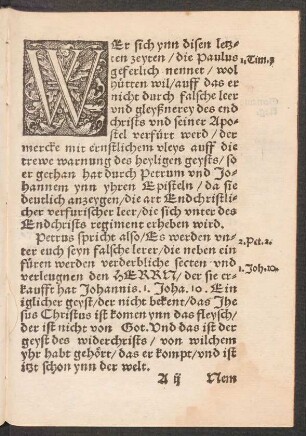 WEr sich ynn disen letz-
ten zeyten/die Paulus
geferlich nennet/wol
hütten wil/auff das er
nicht durch falsche leer
vnd gleyßnerey des end
christs vnd seiner Apo-
stel verfürt werd/der
mercke mit ernstlichem vleys auff die
trewe warnung des heyligen geysts/so
er gethan hat durch Petrum vnd Jo-
hannem ynn yhren Episteln/da sie
deutlich anzeygen/die art Endchristli-
cher verfurischer leer/die sich vnter des
Endchrists regiment erheben wird.
Petrus spricht also/Es werden vn-
ter euch seyn falsche lerer/die neben ein
füren werden verderbliche secten vnd
verleugnen den HERRN/der sie er-
kaufft hat Johannis.1. Joha.10. Ein
iglicher geyst/der nicht bekent/das Jhe
sus Christus ist komen ynn das fleysch/
der ist nicht von Got.Vnd das ist der
geyst des widerchrists/von wilchem
yhr habt gehört/das er kompt/vnd ist
itzt schon ynn der welt.
A ij Nem
1.Tim.3
2.Pet.2.
1.Joh.10.